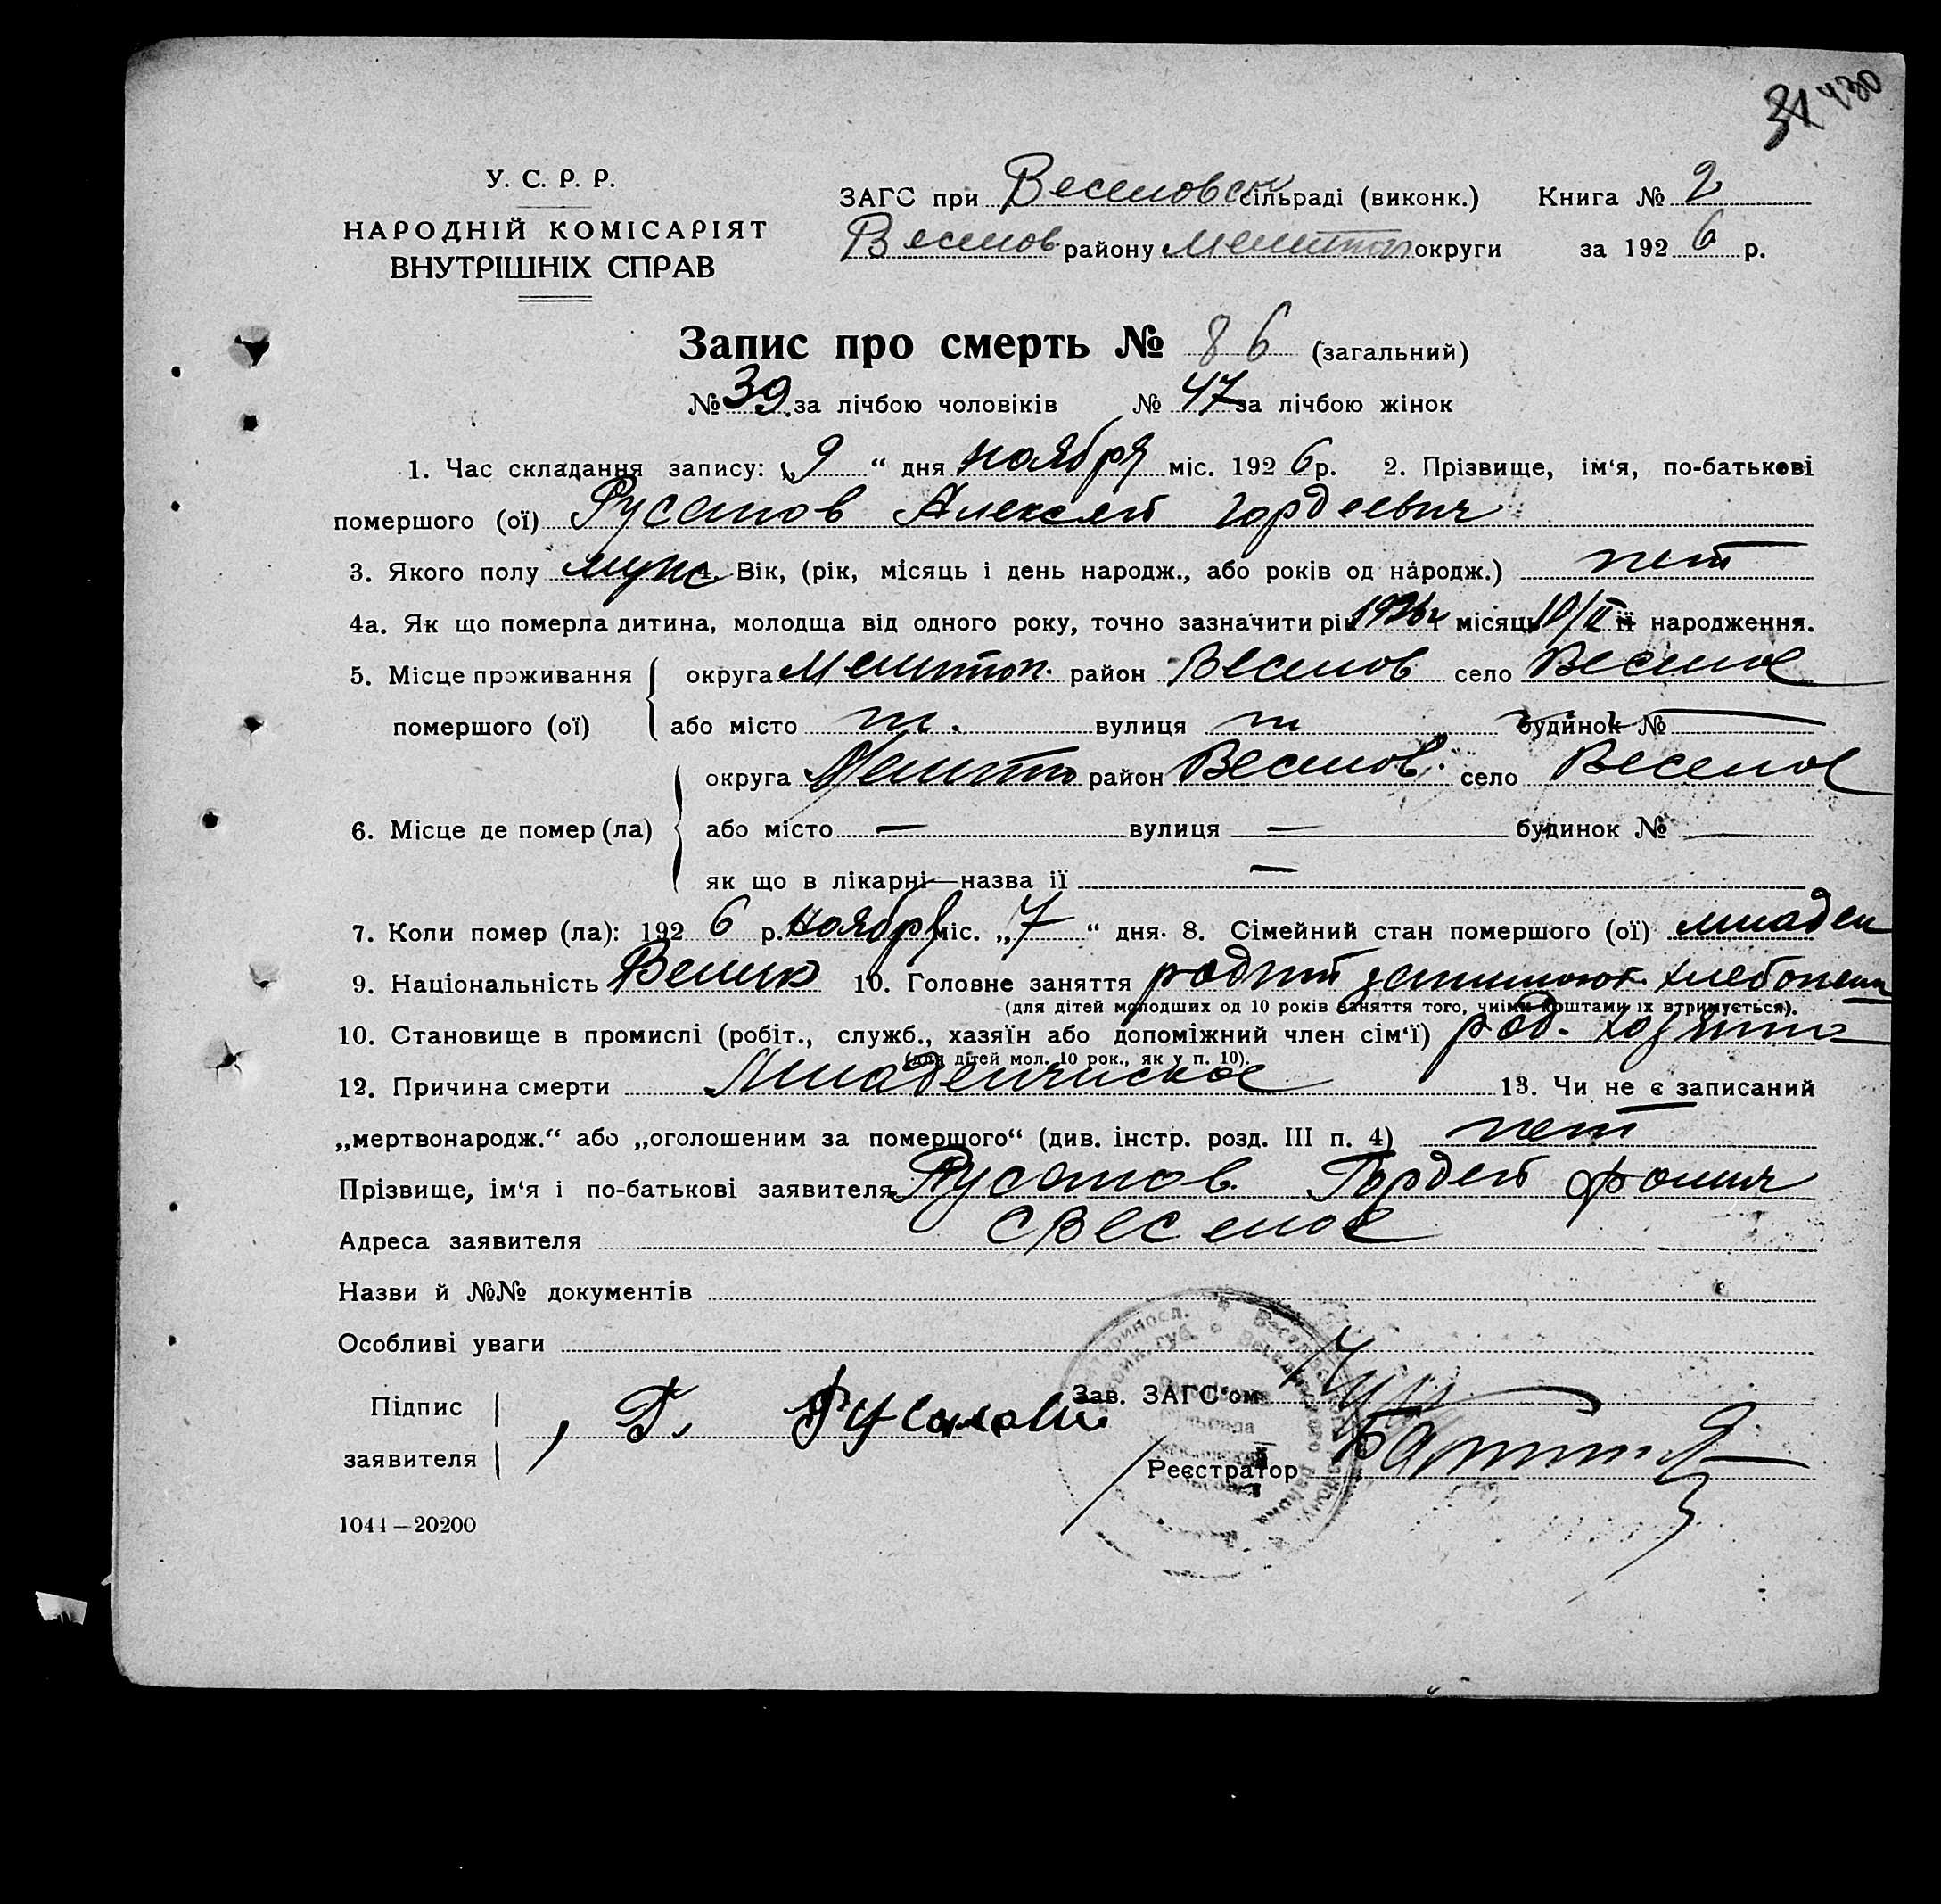 31 430
У. С. Р. Р.
НАРОДНІЙ КОМІСАРІЯТ
ВНУТРІШНІХ СПРАВ
ЗАГС при Веселовск сільраді (виконк.) Книга № 2
Веселов району Мелитоп округи за 1926 р.
Запис про смерть № 86 (загальний)
№ 39 за лічбою чоловіків № 47 за лічбою жінок
1. Час складання запису: „9“ дня ноября міс. 1926 р. 2. Прізвище, ім‘я, по-батькові
помершого (ої) Русанов Алексей Гордеевич
3. Якого полу муж 4. Вік, (рік, місяць і день народж., або років од народж.) нет
4а. Як що померла дитина, молодща від одного року, точно зазначити рік 1926 і місяць її народження.
5. Місце проживання округа Мелитоп. район Веселов село Веселое
помершого (ої) або місто вулиця будинок №
округа Мелито район Веселов. село Веселое
6. Місце де помер (ла) або місто — вулиця — будинок № —
як що в лікарні—назва її —
7. Коли помер (ла): 1926 р. ноября міс. „7“ дня. 8. Сімейний стан помершого (ої) младен
9. Національність Велик 10. Головне заняття родит хлебопаш
(для дітей молодших од 10 років заняття того, чиїми коштами їх втримується).
10. Становище в промислі (робіт., служб., хазяїн або допоміжний член сім‘ї) род. хозяин
(для дітей мол. 10 рок., як у п. 10).
12. Причина смерти Младенчиское 13. Чи не є записаний
„мертвонародж.“ або „оголошеним за померщого“ (див. інстр. розд. III п. 4) нет
Прізвище, ім‘я і по-батькові заявителя Русанов Гордей Фомич
Адреса заявителя с Веселое
Назви й №№ документів
Особливі уваги
Підпис заявителя Г. Русанов
Зав. ЗАГС‘ом
Реєстратор
1044—20200